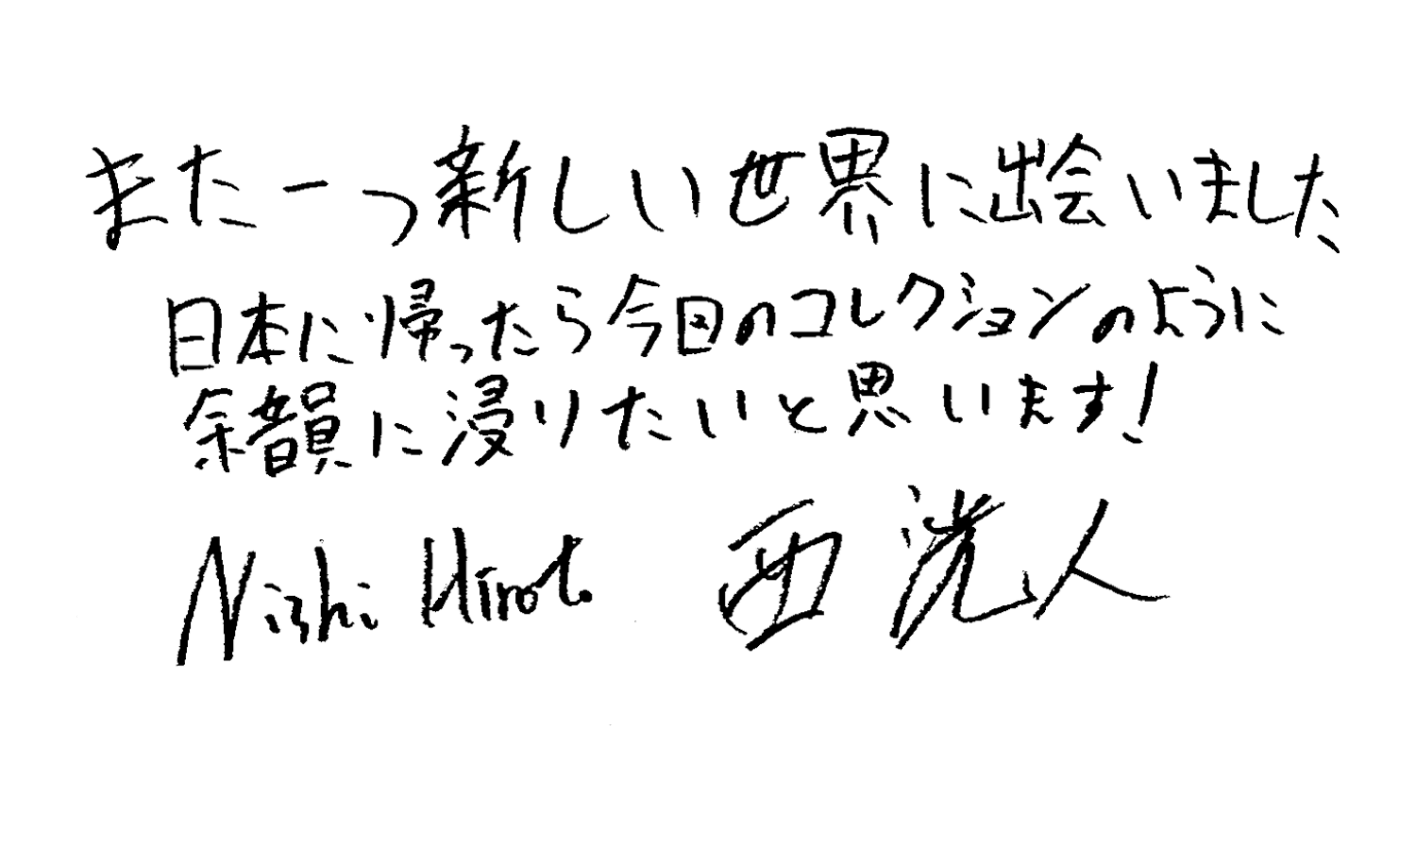 また一つ新しい世界に出会いました
日本に帰ったら今回のコレクションのように
余韻に浸りたいと思います！
Nishi Hiroto 西 滉人